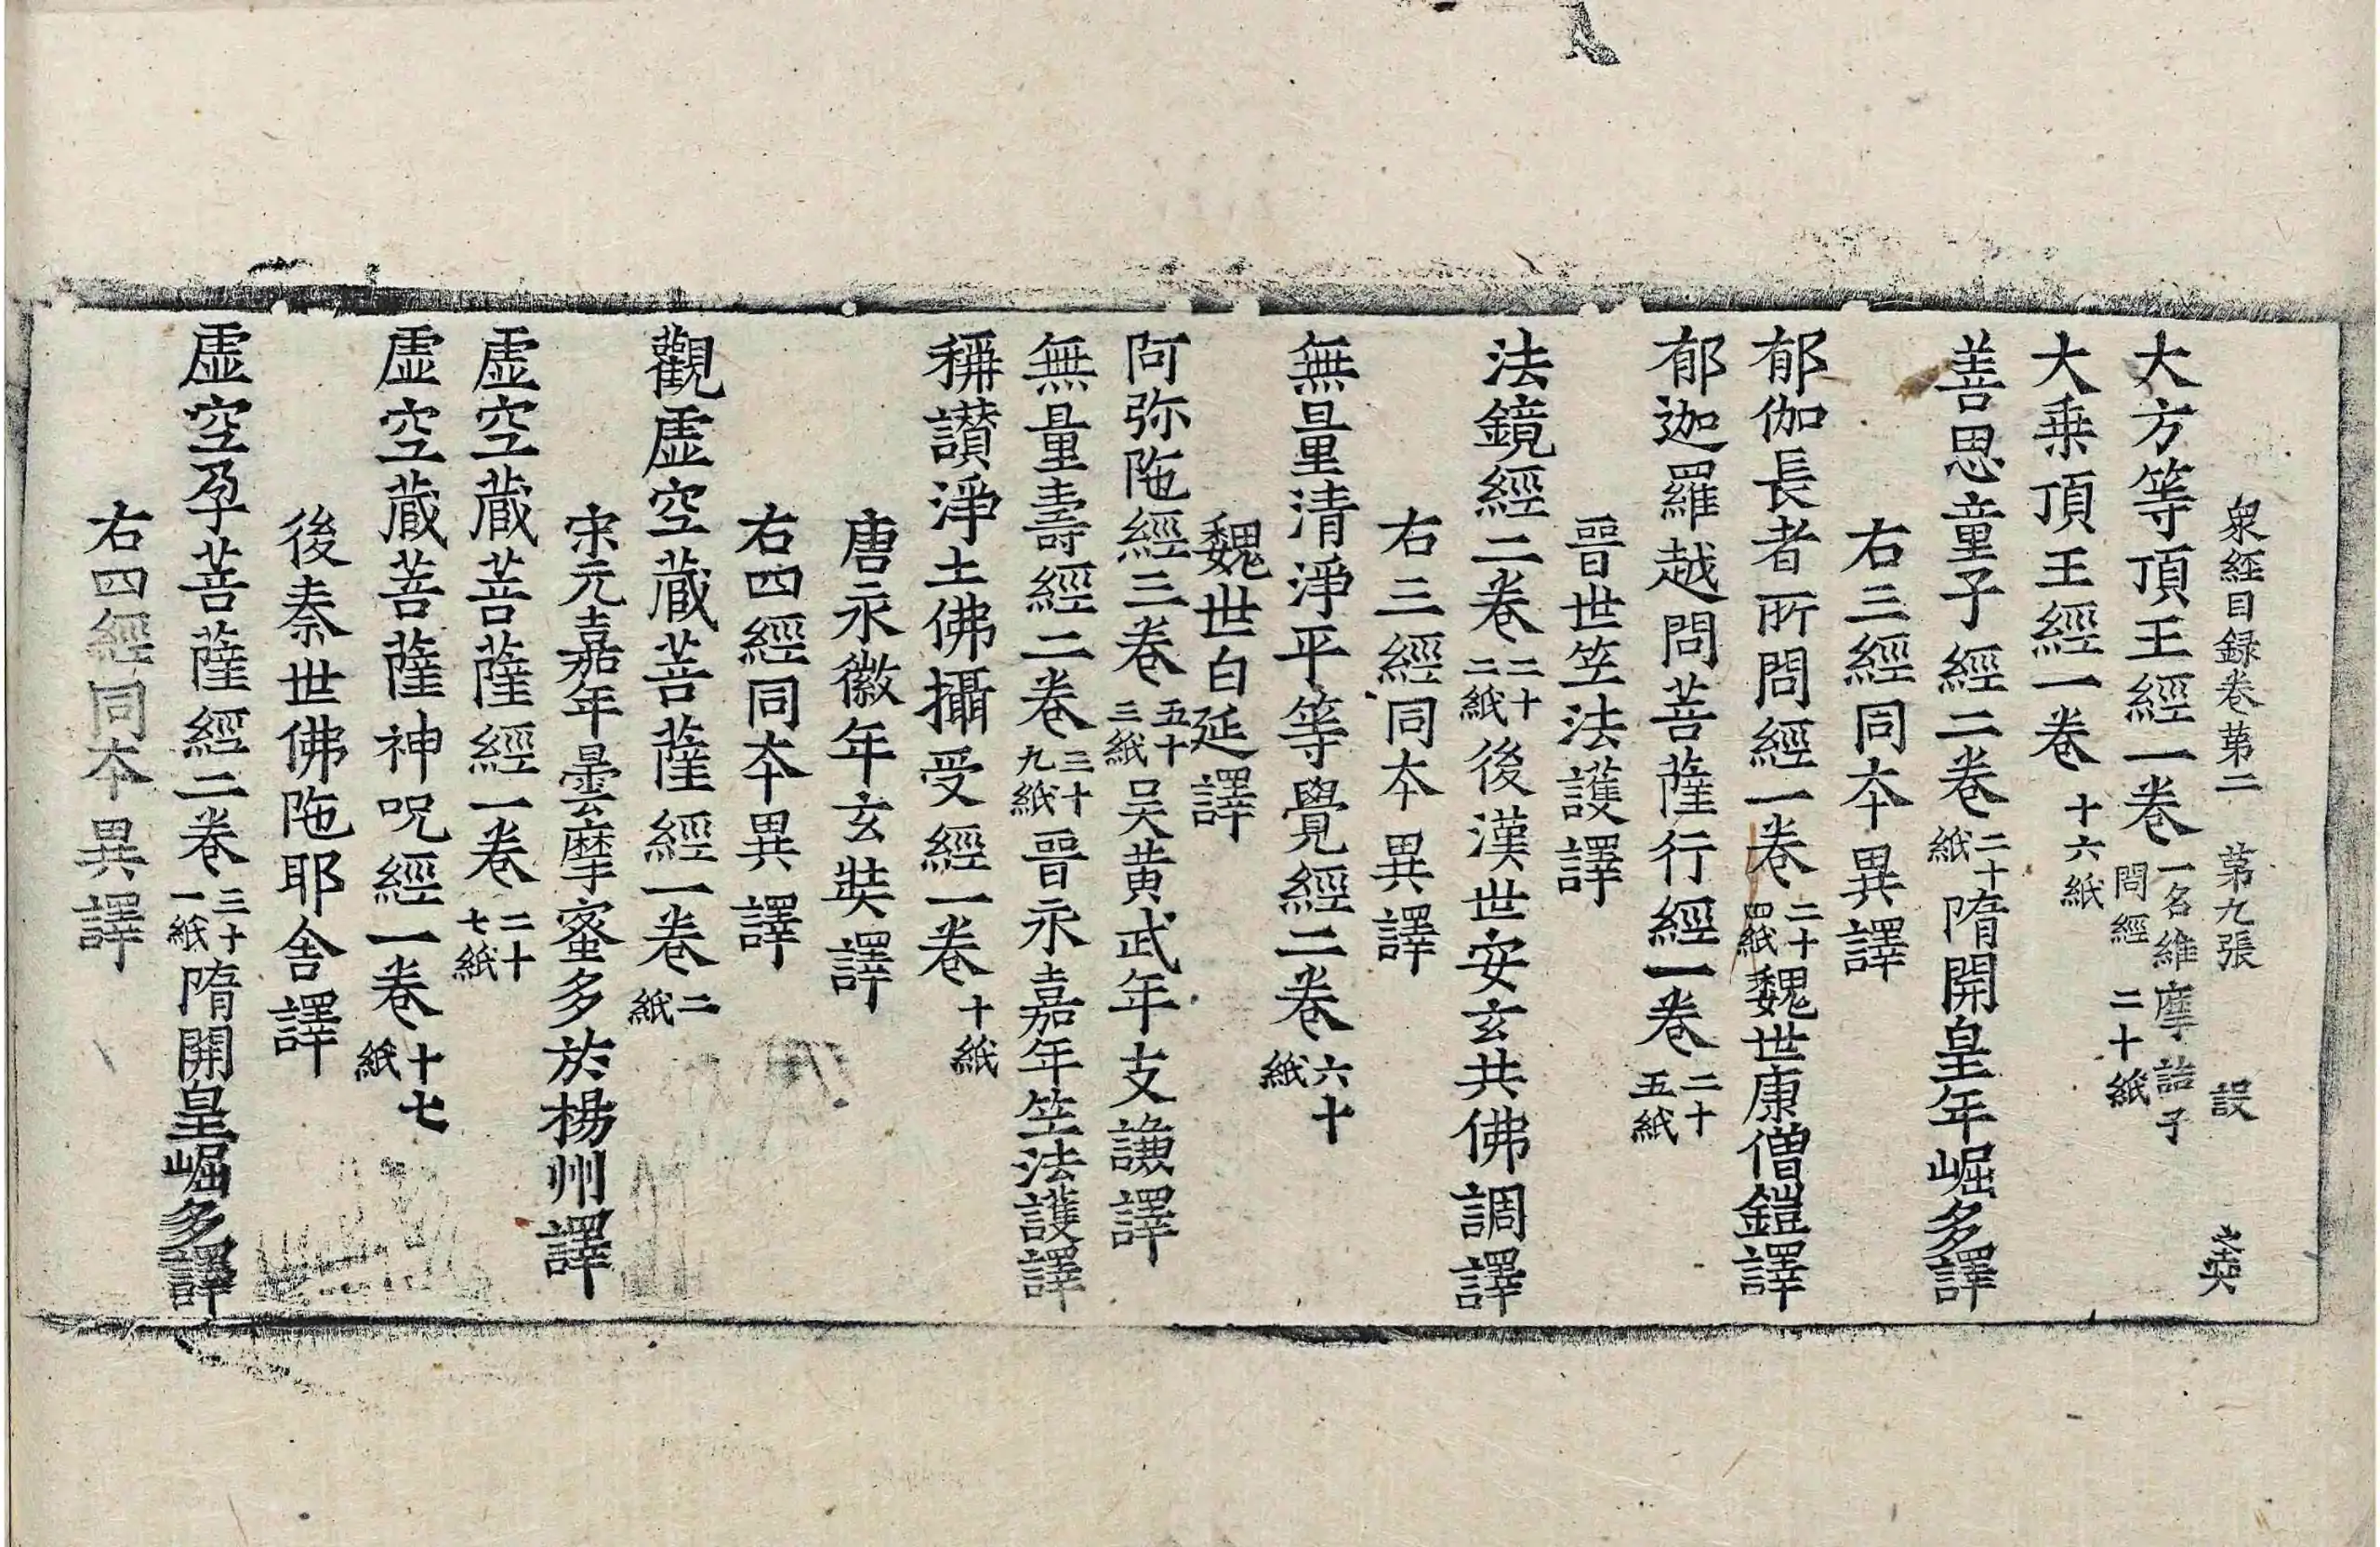 衆經目録卷第二 第九張 設
大方等頂王經一卷 一名維摩詰子問經 二十紙
大乗頂王經一卷 十六紙
善思童子經二卷 二十紙 隋開皇年崛多譯
右三經同夲異譯
郁伽長者所問經一卷 二十四紙 魏世康僧鎧譯
郁迦羅越問菩薩行經一卷 二十五紙
晉世笁法護譯
法鏡經二卷 二十二紙 後漢世安玄共佛調譯
右三經同夲異譯
無量清淨平等覺經二卷 六十紙
魏世白延譯
阿弥陁經三卷 五十三紙 吴黄武年支謙譯
無量壽經二卷 三十九紙 晉永嘉年笁法護譯
稱讃淨土佛攝受經一卷 十紙
唐永徽年玄奘譯
右四經同夲異譯
觀虚空蔵菩薩經一卷 二紙
宋元嘉年曇摩蜜多於楊州譯
虚空蔵菩薩經一卷 二十七紙
虚空蔵菩薩神呪經一卷 十七紙
後秦世佛陁耶舎譯
虚空孕菩薩經二卷 三十一紙 隋開皇崛多譯
右四經同夲異譯